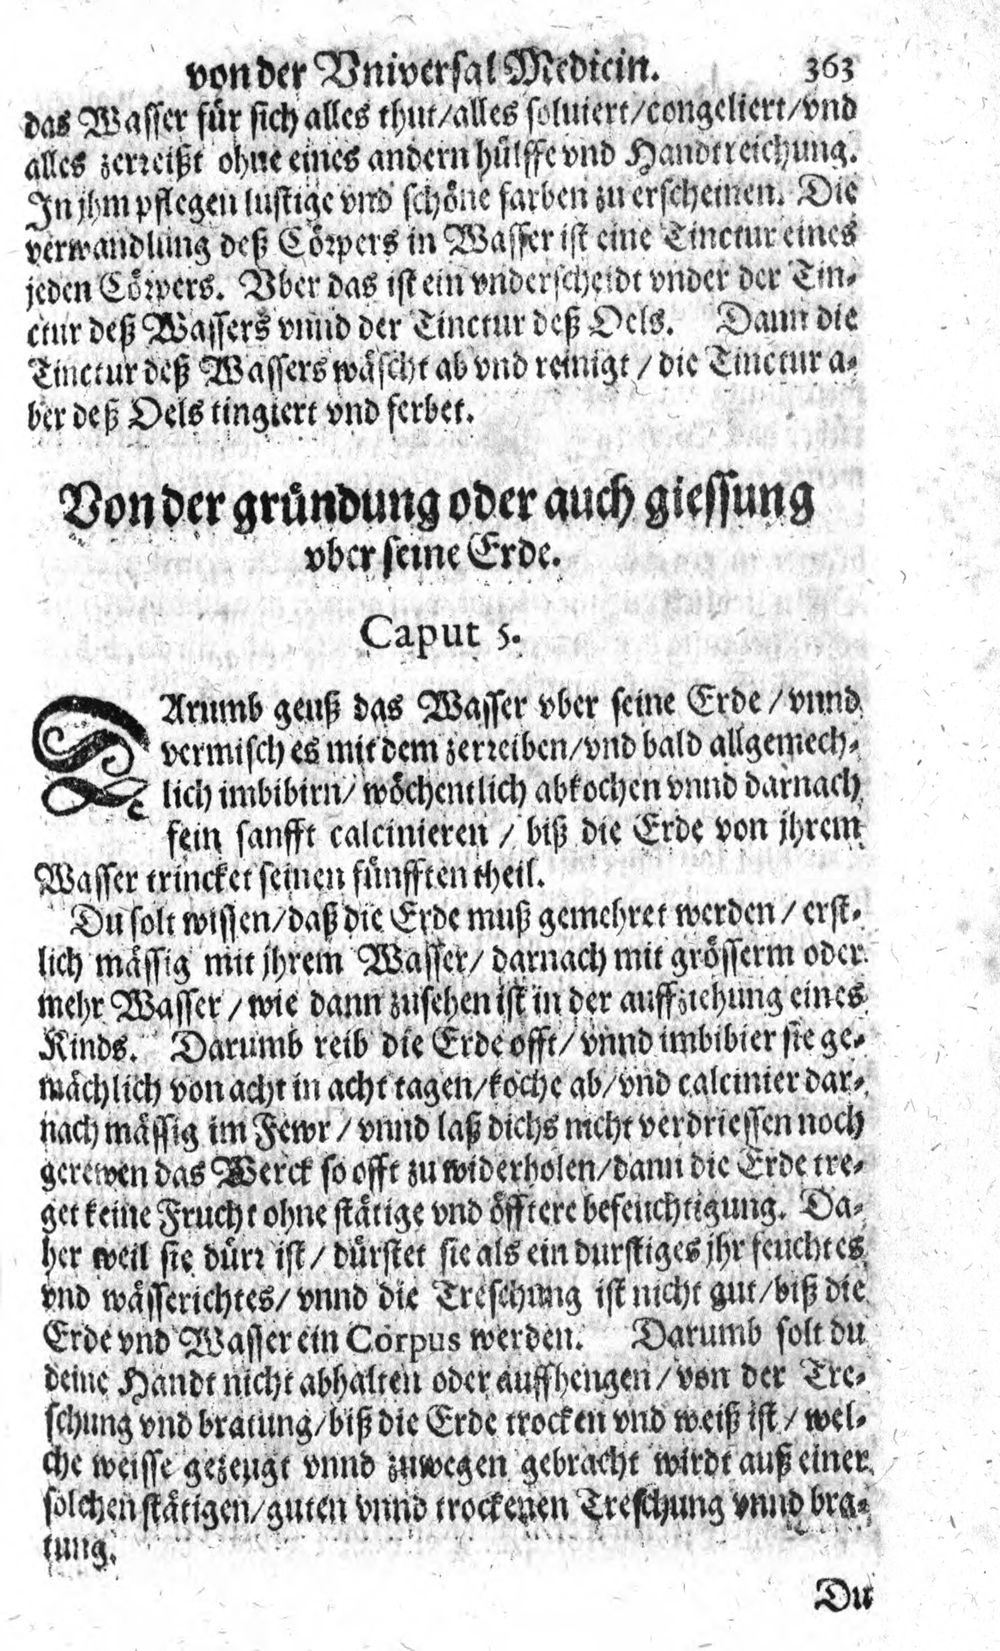 von der Vniversal Medicin. 363
das Wasser für sich alles thut/alles soluiert/congeliert/vnd
alles zerreißt ohne eines andern hülffe vnd Handtreichung.
In jhm pflegen lustige vnd schöne farben zu erscheinen. Die
verwandlung deß Cörpers in Wasser ist eine Tinctur eines
jeden Cörpers. Vber das ist ein vnderscheidt vnder der Tin-
ctur deß Wassers vnnd der Tinctur deß Oels. Dann die
Tinctur deß Wassers wäscht ab vnd reinigt / die Tinctur a-
ber deß Oels tingiert vnd ferbet.
Von der gründung oder auch giessung
vber seine Erde.
Caput 5.
DArumb geuß das Wasser vber seine Erde / vnnd
vermisch es mit dem zerreiben/vnd bald allgemech-
lich imbibirn/ wöchentlich abkochen vnnd darnach
fein sanfft calcinieren / biß die Erde von jhrem
Wasser trincket seinen fünfften theil.
Du solt wissen/daß die Erde muß gemehret werden / erst-
lich mässig mit jhrem Wasser/ darnach mit grösserm oder
mehr Wasser / wie dann zusehen ist in der auffziehung eines
Kinds. Darumb reib die Erde offt/ vnnd imbibier sie ge-
mächlich von acht in acht tagen/koche ab/vnd calcinier dar-
nach mässig im Fewr / vnnd laß dichs nicht verdriessen noch
gerewen das Werck so offt zu widerholen/dann die Erde tre-
get keine Frucht ohne stätige vnd öfftere befeuchtigung. Da-
her weil sie dürr ist / dürstet sie als ein durstiges jhr feuchtes
vnd wässerichtes/ vnnd die Treschung ist nicht gut/biß die
Erde vnd Wasser ein Corpus werden. Darumb solt du
deine Handt nicht abhalten oder auffhengen / von der Tre-
schung vnd bratung/biß die Erde trocken vnd weiß ist / wel-
che weisse gezeugt vnnd zuwegen gebracht wirdt auß einer
solchen stätigen/guten vnnd trockenen Treschung vnnd bra-
tung.
Du